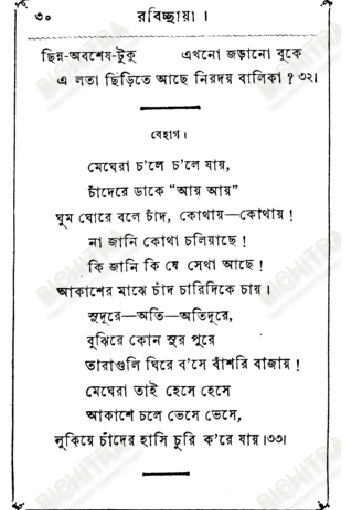 ৩০ রবিচ্ছায়া।
ছিন্ন-অবশেষ-টুকু এখনো জড়ানো বুকে
এ লতা ছিঁড়িতে আছে নিরদয় বালিকা ? ৩২।
বেহাগ॥
মেঘেরা চ'লে চ'লে যায়,
চাঁদেরে ডাকে “আয় আয়”
ঘুম ঘোরে বলে চাঁদ, কোথায়—কোথায় !
না জানি কোথা চলিয়াছে !
কি জানি কি যে সেথা আছে !
আকাশের মাঝে চাঁদ চারিদিকে চায়।
সুদূরে—অতি—অতিদূরে,
বুঝিরে কোন সুর পুরে
তারাগুলি ঘিরে ব'সে বাঁশরি বাজায় !
মেঘেরা তাই হেসে হেসে
আকাশে চলে ভেসে ভেসে,
লুকিয়ে চাঁদের হাসি চুরি ক'রে যায়।৩৩।
BICHITRA